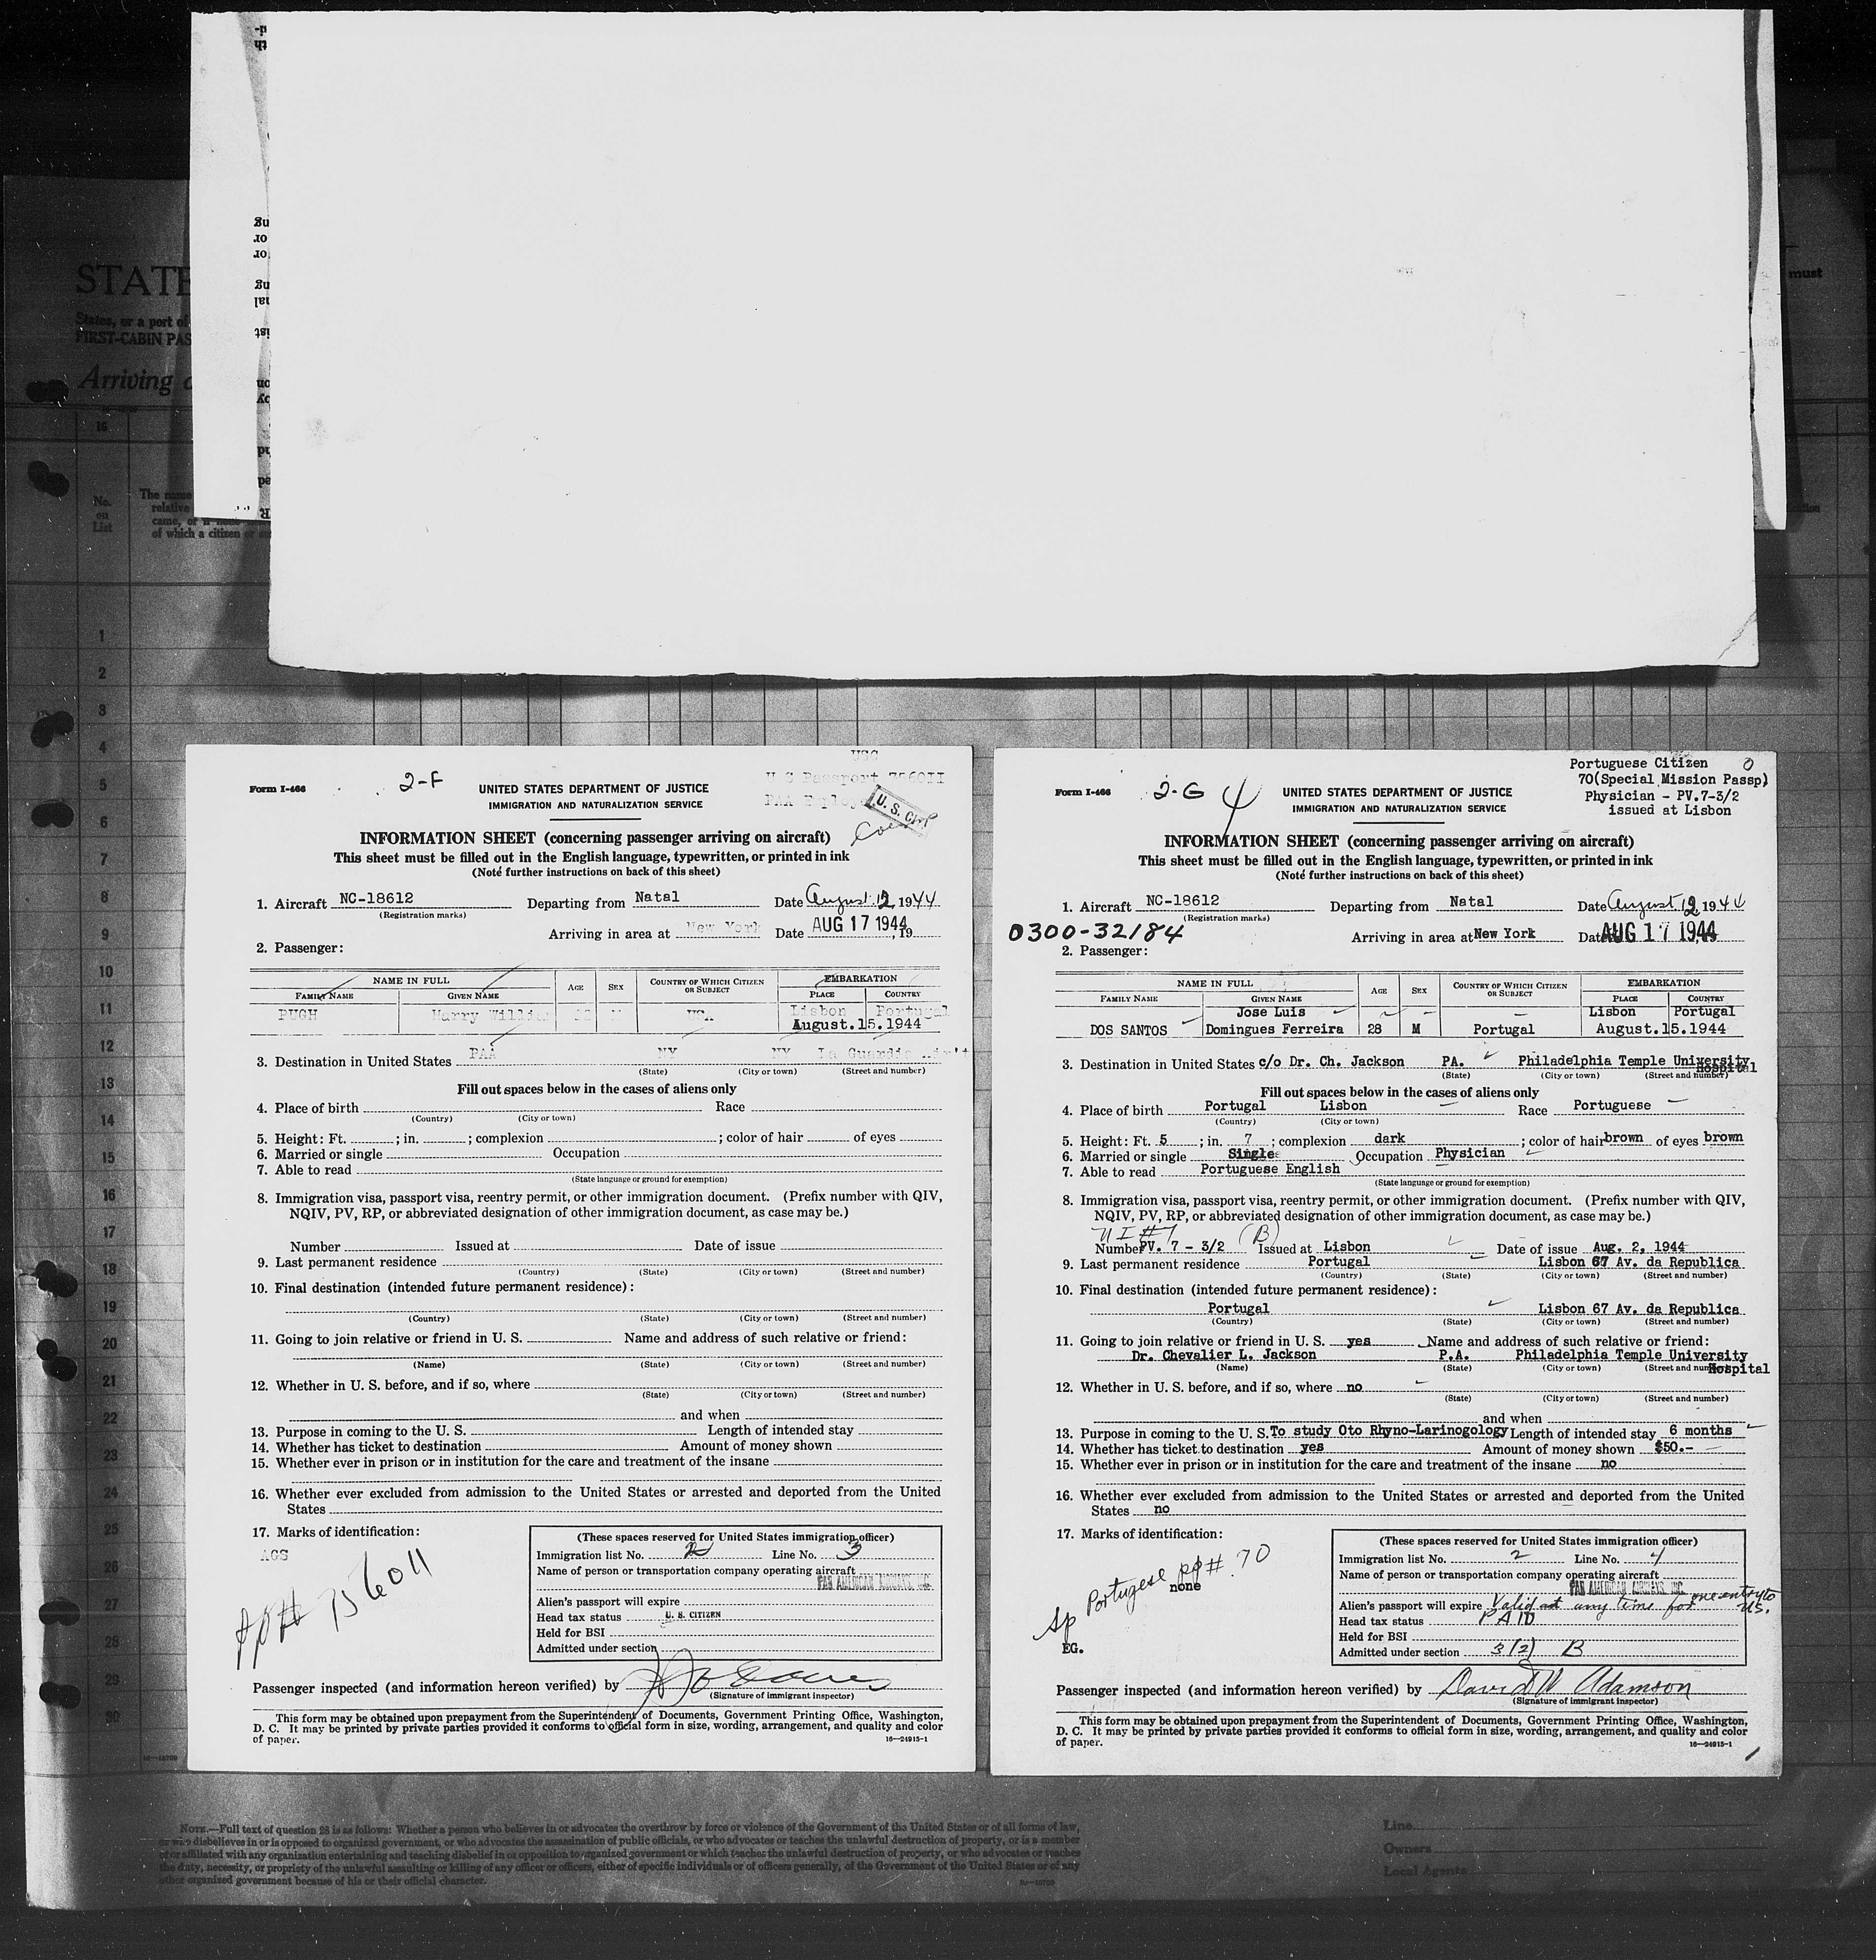 STATE
States, or a port of
FIRST-CABIN PAS
Arriving
must
16
No.
on
List
The name
relative
came, or if none
of which a citizen or
1
2
3
4
5
6
7
8
9
10
11
12
13
14
15
16
17
18
19
20
21
22
23
24
25
26
27
28
29
30
USC
U S Passport 756011
PAA Employ
U. S. CIT
Form I-466
2-F
UNITED STATES DEPARTMENT OF JUSTICE
IMMIGRATION AND NATURALIZATION SERVICE
INFORMATION SHEET (concerning passenger arriving on aircraft)
This sheet must be filled out in the English language, typewritten, or printed in ink
(Note further instructions on back of this sheet)
1. Aircraft NC-18612 Departing from Natal Date August 12, 1944
(Registration marks)
Arriving in area at New York Date AUG 17 1944, 19
2. Passenger:
NAME IN FULL AGE SEX COUNTRY OF WHICH CITIZEN OR SUBJECT EMBARKATION
FAMILY NAME GIVEN NAME PLACE COUNTRY
PUGH Harry William M USA Lisbon Portugal
August.15.1944
3. Destination in United States PAA NY NY La Guardia Air't
(State) (City or town) (Street and number)
Fill out spaces below in the cases of aliens only
4. Place of birth Race
(Country) (City or town)
5. Height: Ft. ; in. ; complexion ; color of hair of eyes
6. Married or single Occupation
7. Able to read
(State language or ground for exemption)
8. Immigration visa, passport visa, reentry permit, or other immigration document. (Prefix number with QIV,
NQIV, PV, RP, or abbreviated designation of other immigration document, as case may be.)
Number Issued at Date of issue
9. Last permanent residence
(Country) (State) (City or town) (Street and number)
10. Final destination (intended future permanent residence):
(Country) (State) (City or town) (Street and number)
11. Going to join relative or friend in U. S. Name and address of such relative or friend:
(Name) (State) (City or town) (Street and number)
12. Whether in U. S. before, and if so, where
(State) (City or town) (Street and number)
and when
13. Purpose in coming to the U. S. Length of intended stay
14. Whether has ticket to destination Amount of money shown
15. Whether ever in prison or in institution for the care and treatment of the insane
16. Whether ever excluded from admission to the United States or arrested and deported from the United
States
17. Marks of identification:
AGS
pp# 756011
(These spaces reserved for United States immigration officer)
Immigration list No. 2 Line No. 3
Name of person or transportation company operating aircraft
PAN AMERICAN AIRWAYS, INC.
Alien's passport will expire
Head tax status U. S. CITIZEN
Held for BSI
Admitted under section
Passenger inspected (and information hereon verified) by
(Signature of immigrant inspector)
This form may be obtained upon prepayment from the Superintendent of Documents, Government Printing Office, Washington,
D. C. It may be printed by private parties provided it conforms to official form in size, wording, arrangement, and quality and color
of paper.
16—24915-1
Portuguese Citizen
70(Special Mission Passp)
Physician - PV.7-3/2
issued at Lisbon
Form I-466
2-G 4
UNITED STATES DEPARTMENT OF JUSTICE
IMMIGRATION AND NATURALIZATION SERVICE
INFORMATION SHEET (concerning passenger arriving on aircraft)
This sheet must be filled out in the English language, typewritten, or printed in ink
(Note further instructions on back of this sheet)
1. Aircraft NC-18612 Departing from Natal Date August 12, 1944
(Registration marks)
0300-32184
Arriving in area at New York Date AUG 17 1944
2. Passenger:
NAME IN FULL AGE SEX COUNTRY OF WHICH CITIZEN OR SUBJECT EMBARKATION
FAMILY NAME GIVEN NAME PLACE COUNTRY
Jose Luis Lisbon Portugal
DOS SANTOS Domingues Ferreira 28 M Portugal August.15.1944
3. Destination in United States c/o Dr. Ch. Jackson PA. Philadelphia Temple University
Hospital
(State) (City or town) (Street and number)
Fill out spaces below in the cases of aliens only
4. Place of birth Portugal Lisbon Race Portuguese
(Country) (City or town)
5. Height: Ft. 5 ; in. 7 ; complexion dark ; color of hair brown of eyes brown
6. Married or single Single Occupation Physician
7. Able to read Portuguese English
(State language or ground for exemption)
8. Immigration visa, passport visa, reentry permit, or other immigration document. (Prefix number with QIV,
NQIV, PV, RP, or abbreviated designation of other immigration document, as case may be.)
(B)
Number PV. 7 - 3/2 Issued at Lisbon Date of issue Aug. 2, 1944
9. Last permanent residence Portugal Lisbon 67 Av. da Republica
(Country) (State) (City or town) (Street and number)
10. Final destination (intended future permanent residence):
Portugal Lisbon 67 Av. da Republica
(Country) (State) (City or town) (Street and number)
11. Going to join relative or friend in U. S. yes Name and address of such relative or friend:
Dr. Chevalier L. Jackson P.A. Philadelphia Temple University
Hospital
(Name) (State) (City or town) (Street and number)
12. Whether in U. S. before, and if so, where no
(State) (City or town) (Street and number)
and when
13. Purpose in coming to the U. S. To study Oto Rhyno-Larinogology Length of intended stay 6 months
14. Whether has ticket to destination yes Amount of money shown $50.-
15. Whether ever in prison or in institution for the care and treatment of the insane no
16. Whether ever excluded from admission to the United States or arrested and deported from the United
States no
17. Marks of identification:
Sp Portugese pp# 70
none
EG.
(These spaces reserved for United States immigration officer)
Immigration list No. 2 Line No. 4
Name of person or transportation company operating aircraft
PAN AMERICAN AIRWAYS, INC.
Alien's passport will expire Valid at any time for one entry to U.S.
Head tax status PAID
Held for BSI
Admitted under section 3(2) B
Passenger inspected (and information hereon verified) by David W Adamson
(Signature of immigrant inspector)
This form may be obtained upon prepayment from the Superintendent of Documents, Government Printing Office, Washington,
D. C. It may be printed by private parties provided it conforms to official form in size, wording, arrangement, and quality and color
of paper.
16—24915-1
NOTE.—Full text of question 28 is as follows: Whether a person who believes in or advocates the overthrow by force or violence of the Government of the United States or of all forms of law,
or who disbelieves in or is opposed to organized government, or who advocates the assassination of public officials, or who advocates or teaches the unlawful destruction of property, or is a member
of or affiliated with any organization entertaining and teaching disbelief in or opposition to organized government or which teaches the unlawful destruction of property, or who advocates or teaches
the duty, necessity, or propriety of the unlawful assaulting or killing of any officer or officers, either of specific individuals or of officers generally, of the Government of the United States or of any
other organized government because of his or their official character.
Line
Owners
Local Agents